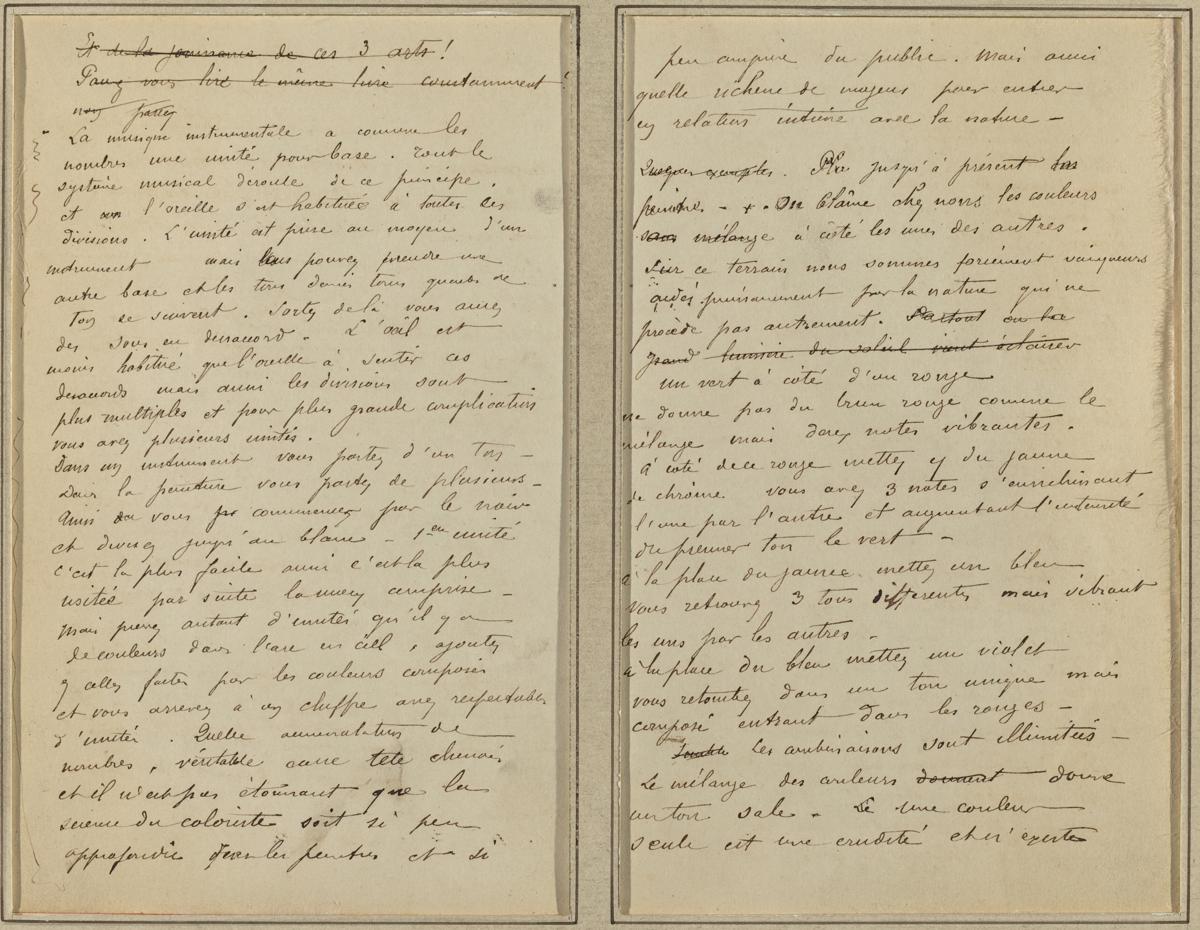 Et de la jouissance de ces 3 arts!
vous lire le même livre constamment
partez
La musique instrumentale a comme les
nombres une unité pour base. Tout le
système musical découle de ce principe.
et l'oreille s'est habituée à toutes ces
divisions. L'unité est prise au moyen d'un
instrument mais vous pouvez prendre une
autre base et les tons demis tons quarts de
ton se suivent. Sortez de là vous avez
des sons en désaccord. L'œil est
moins habitué que l'oreille à sentir ces
desacords mais aussi les divisions sont
plus multiples et pour plus grande complication
vous avez plusieurs unités.
Dans un instrument vous partez d'un ton —
Dans la peinture vous partez de plusieurs —
Ainsi vous commencez par le noir
et divisez jusqu'au blanc — 1ere unité
c'est la plus facile aussi c'est la plus
usitée par suite la mieux comprise —
Mais prenez autant d'unités qu'il y a
de couleurs dans l'arc en ciel, ajoutez
y celles faites par les couleurs composées
et vous arrivez à un chiffre assez respectable
d'unités. Quelle accumulation de
nombres, véritable casse tête chinois
et il n'est pas étonnant que la
science du coloriste soit si peu
approfondie les peintres et si
peu comprise du public. Mais aussi
quelle richesse de moyens pour entrer
en relation intime avec la nature —
Quelques exemples. jusqu'à présent les
peintres — x. On blâme chez nous les couleurs
sans mélange à côté les unes des autres.
Sur ce terrain nous sommes forcément vainqueurs
aidés puissamment par la nature qui ne
procède pas autrement. Partout ou la
grand lumière du soleil vient éclairer
un vert à côté d'un rouge
ne donne pas du brun rouge comme le
mélange mais deux notes vibrantes.
À côté de ce rouge mettez y du jaune
de chrôme vous avez 3 notes s'enrichissant
l'une par l'autre et augmentant l'intensité
du premier ton le vert —
à la place du jaune mettez un bleu
vous retrouvez 3 tons differents mais vibrant
les uns par les autres —
à la place du bleu mettez un violet
vous retombez dans un ton unique mais
composé entrant dans les rouges —
Les combinaisons sont illimitées —
Le mélange des couleurs donnent donne
un ton sale. Une couleur
seule est une crudité et n'existe